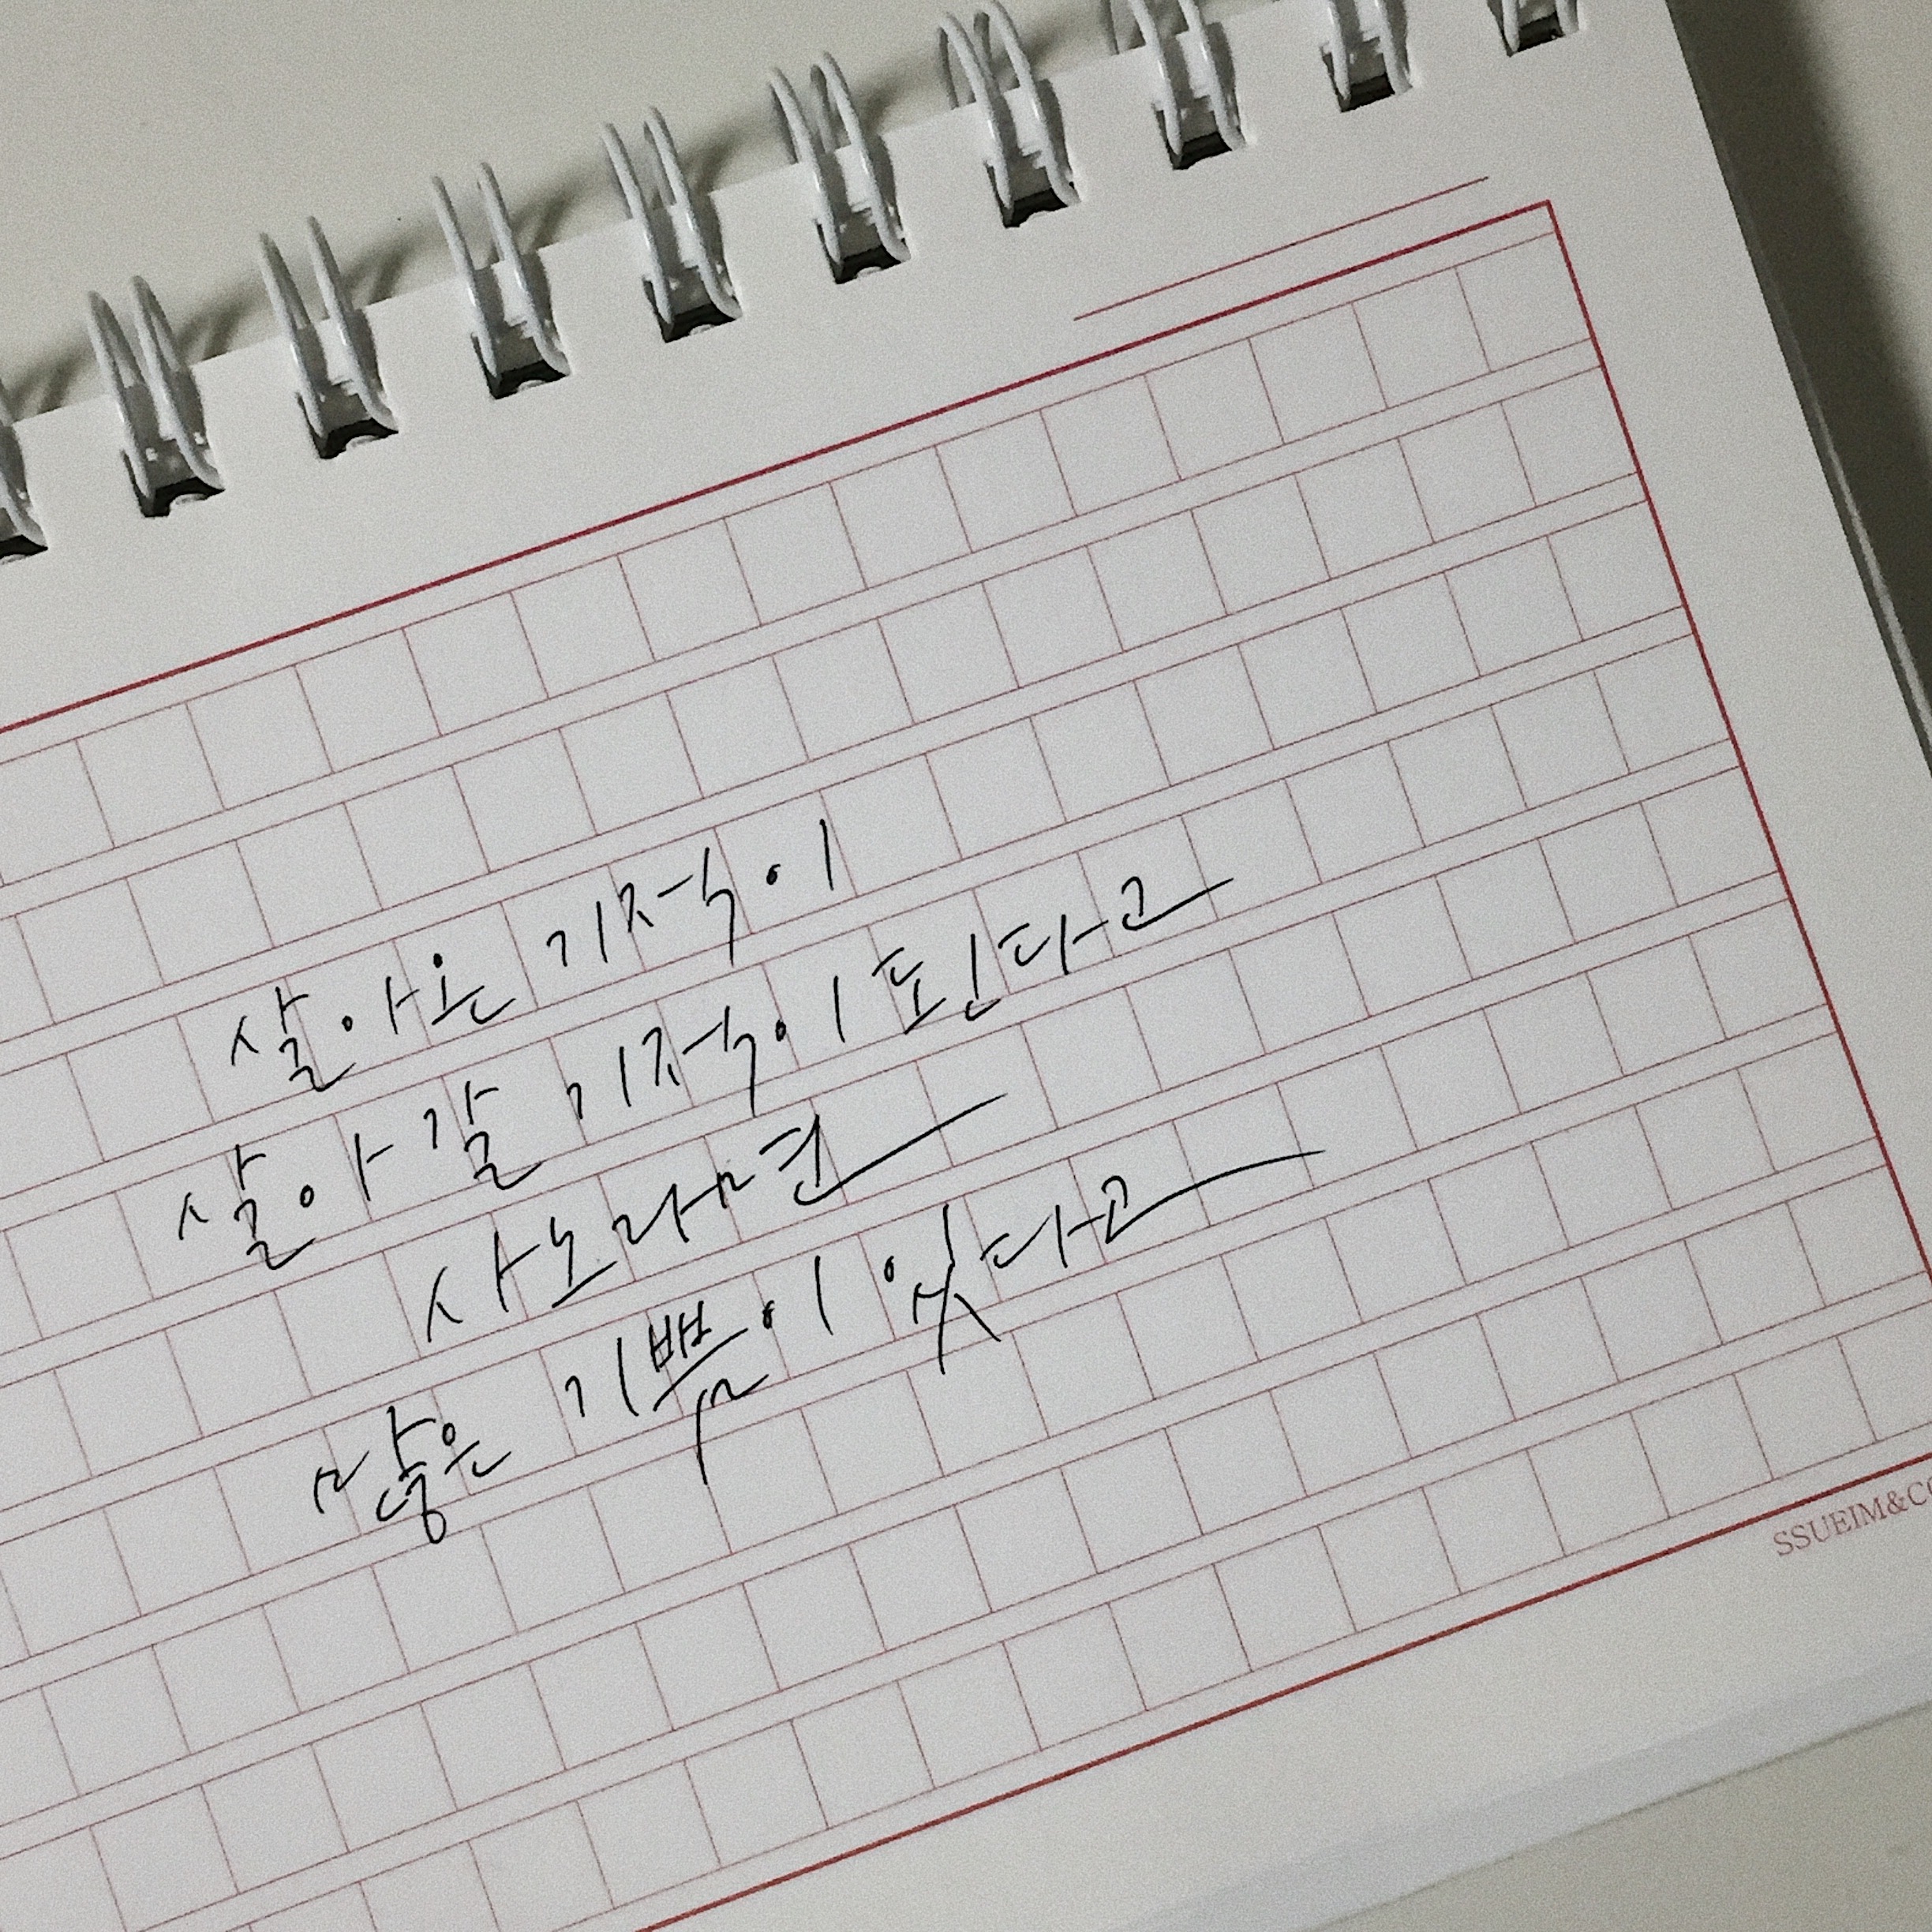 살아온 기적이
살아갈 기적이 된다고
사노라면
많은 기쁨이 있다고
SSUEIM&CO